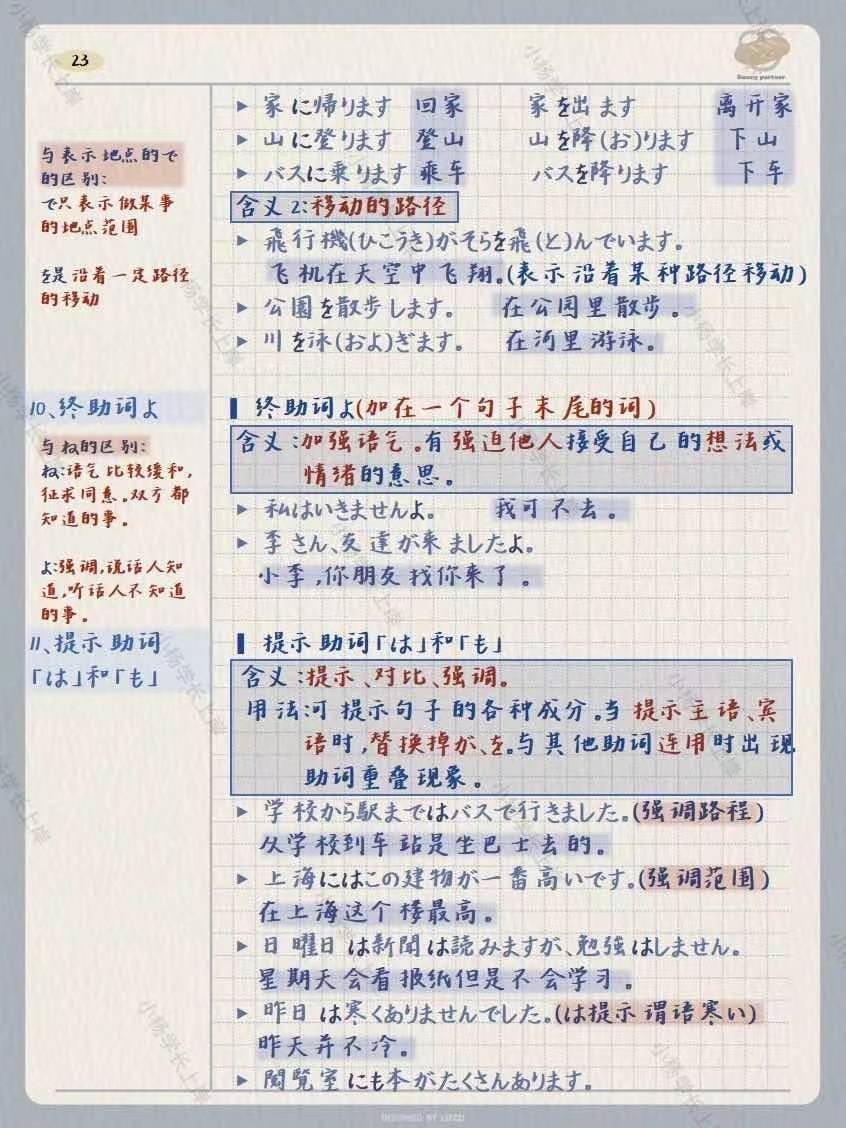 23
Sunny partner
▶ 家に帰ります 回家 家を出ます 离开家
▶ 山に登ります 登山 山を降(お)ります 下山
▶ バスに乗ります 乘车 バスを降ります 下车
含义2:移动的路径
▶ 飛行機(ひこうき)がそらを飛(と)んでいます。
飞机在天空中飞翔。(表示沿着某种路径移动)
▶ 公園を散歩します。 在公园里散步。
▶ 川を泳(およ)ぎます。 在河里游泳。
与表示地点的で
的区别:
で只表示做某事
的地点范围
を是沿着一定路径
的移动
10、终助词よ
▌终助词よ(加在一个句子末尾的词)
含义:加强语气。有强迫他人接受自己的想法或
情绪的意思。
▶ 私はいきませんよ。 我可不去。
▶ 李さん、友達が来ましたよ。
小李,你朋友找你来了。
与ね的区别:
ね:语气比较缓和,
征求同意。双方都
知道的事。
よ:强调,说话人知
道,听话人不知道
的事。
11、提示助词
「は」和「も」
▌提示助词「は」和「も」
含义:提示、对比、强调。
用法:可提示句子的各种成分。当提示主语、宾
语时,替换掉が、を。与其他助词连用时出现
助词重叠现象。
▶ 学校から駅まではバスで行きました。(强调路程)
从学校到车站是坐巴士去的。
▶ 上海にはこの建物が一番高いです。(强调范围)
在上海这个楼最高。
▶ 日曜日は新聞は読みますが、勉強はしません。
星期天会看报纸但是不会学习。
▶ 昨日は寒くありませんでした。(は提示谓语寒い)
昨天并不冷。
▶ 閲覧室にも本がたくさんあります。
小杨学长上岸